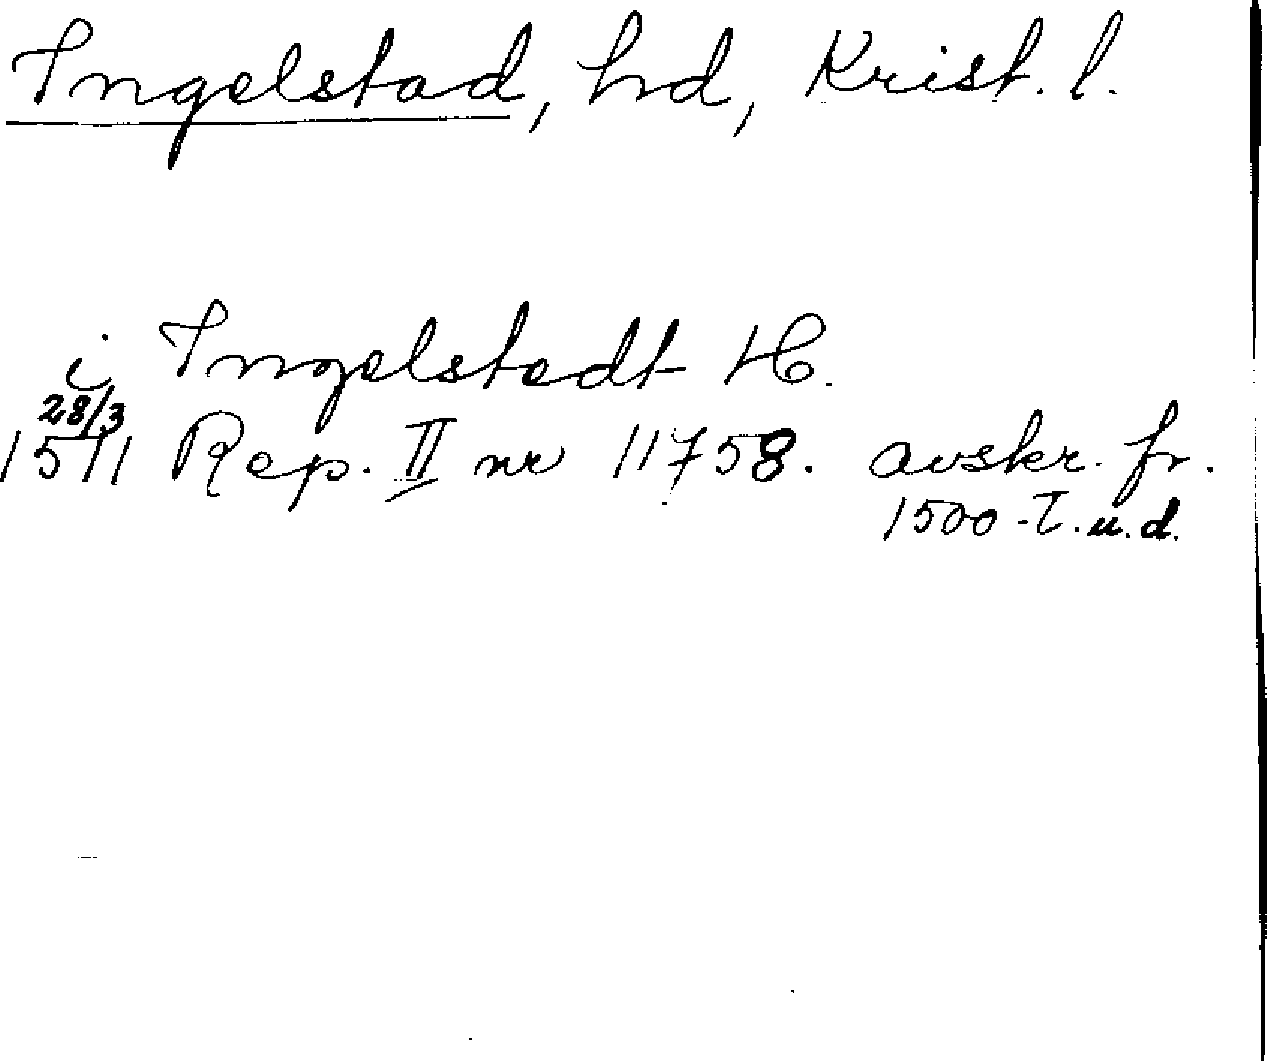 Ingelstad, hd, Krist. l.
i Ingelstedt H.
28/3
1511 Rep. II nr 11758. avskr. fr.
1500-T. u. d.